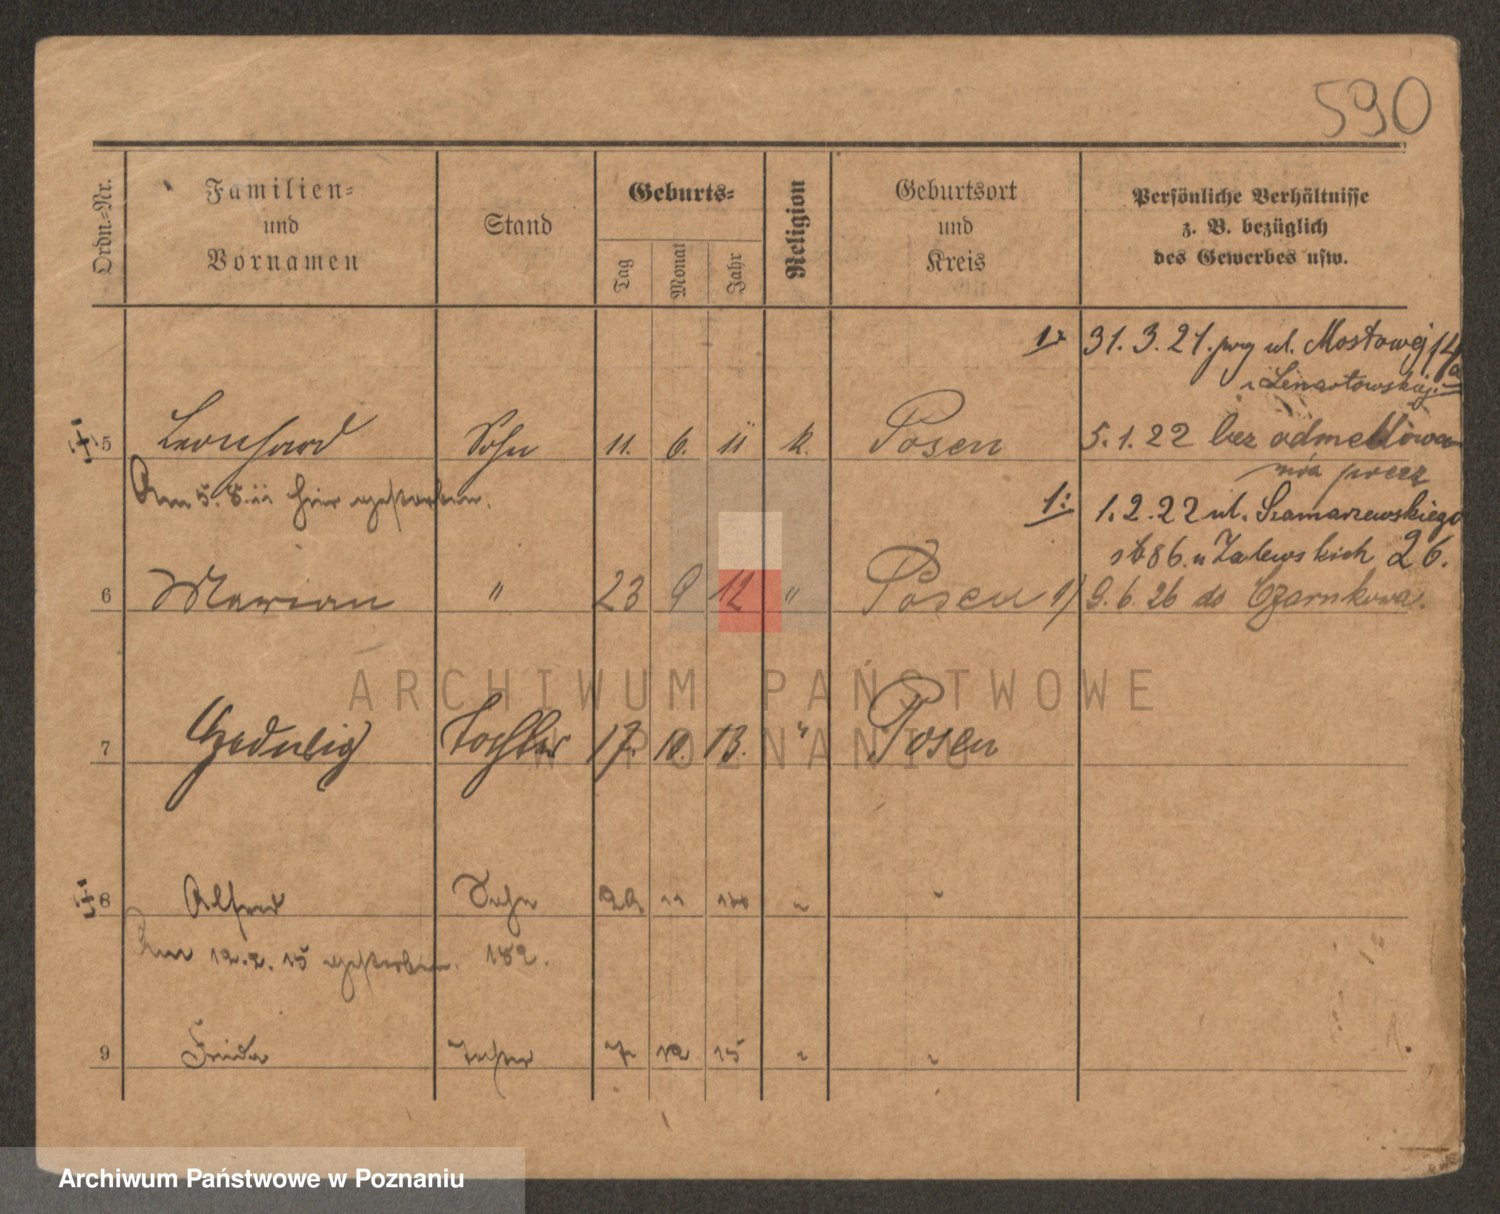 590
Ordn.-Nr.
Familien-
und
Vornamen
Stand
Geburts-
Tag
Monat
Jahr
Religion
Geburtsort
und
Kreis
Persönliche Verhältnisse
z. B. bezüglich
des Gewerbes usw.
1x 31. 3. 21. przy ul. Mostowej 14a
u Lenartowskiej.
5 Leonhard Sohn 11. 6. 11 k. Posen 5. 1. 22 bez odmeldowa
nia precz
Am 5. 8. 11 hier gestorben.
1: 1. 2. 22 ul. Szamarzewskiego
u Zalewskich 26.
6 Marian " 23 9 12 " Posen 1/ 9. 6. 26 do Czarnkowa.
ARCHIWUM PAŃSTWOWE
W POZNANIU
7 Hedwig Tochter 17. 10. 13. " Posen
8 Alfred Sohn 22 11 14 " "
Am 12. 2. 15 gestorben. 182.
9 Frida Tochter 7 12 15 " "
Archiwum Państwowe w Poznaniu